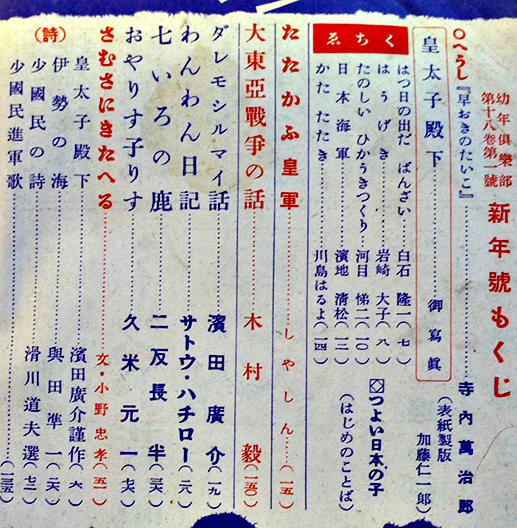 幼年倶樂部 新年號もくじ
第十八卷第一號
○へうし『早おきのたいこ』……寺内萬治郎
(表紙製版 加藤仁一郎)
皇太子殿下……御寫眞
□つよい日本の子
(はじめのことば)
くちゑ
はつ日の出だ ばんざい……白石隆一(七)
はうげき……岩崎大子(八)
たのしい ひかうきつくり……河目悌二(一〇)
日本海軍……濱地清松(一二)
かたたたき……川島はるよ(一四)
たたかふ皇軍……しやしん……(一五)
大東亞戰爭の話……木村毅(一五〇)
ダレモシルマイ話……濱田廣介(一九)
わんわん日記……サトウ・ハチロー(二八)
七いろの鹿……二反長半(三六)
おやりす子りす……久米元一(七六)
さむさにきたへる……文・小野忠孝(五一)
(詩)
皇太子殿下……濱田廣介謹作(六)
伊勢の海……與田凖一(二六)
少國民の詩……滑川道夫選(七二)
少國民進軍歌……(一三五)